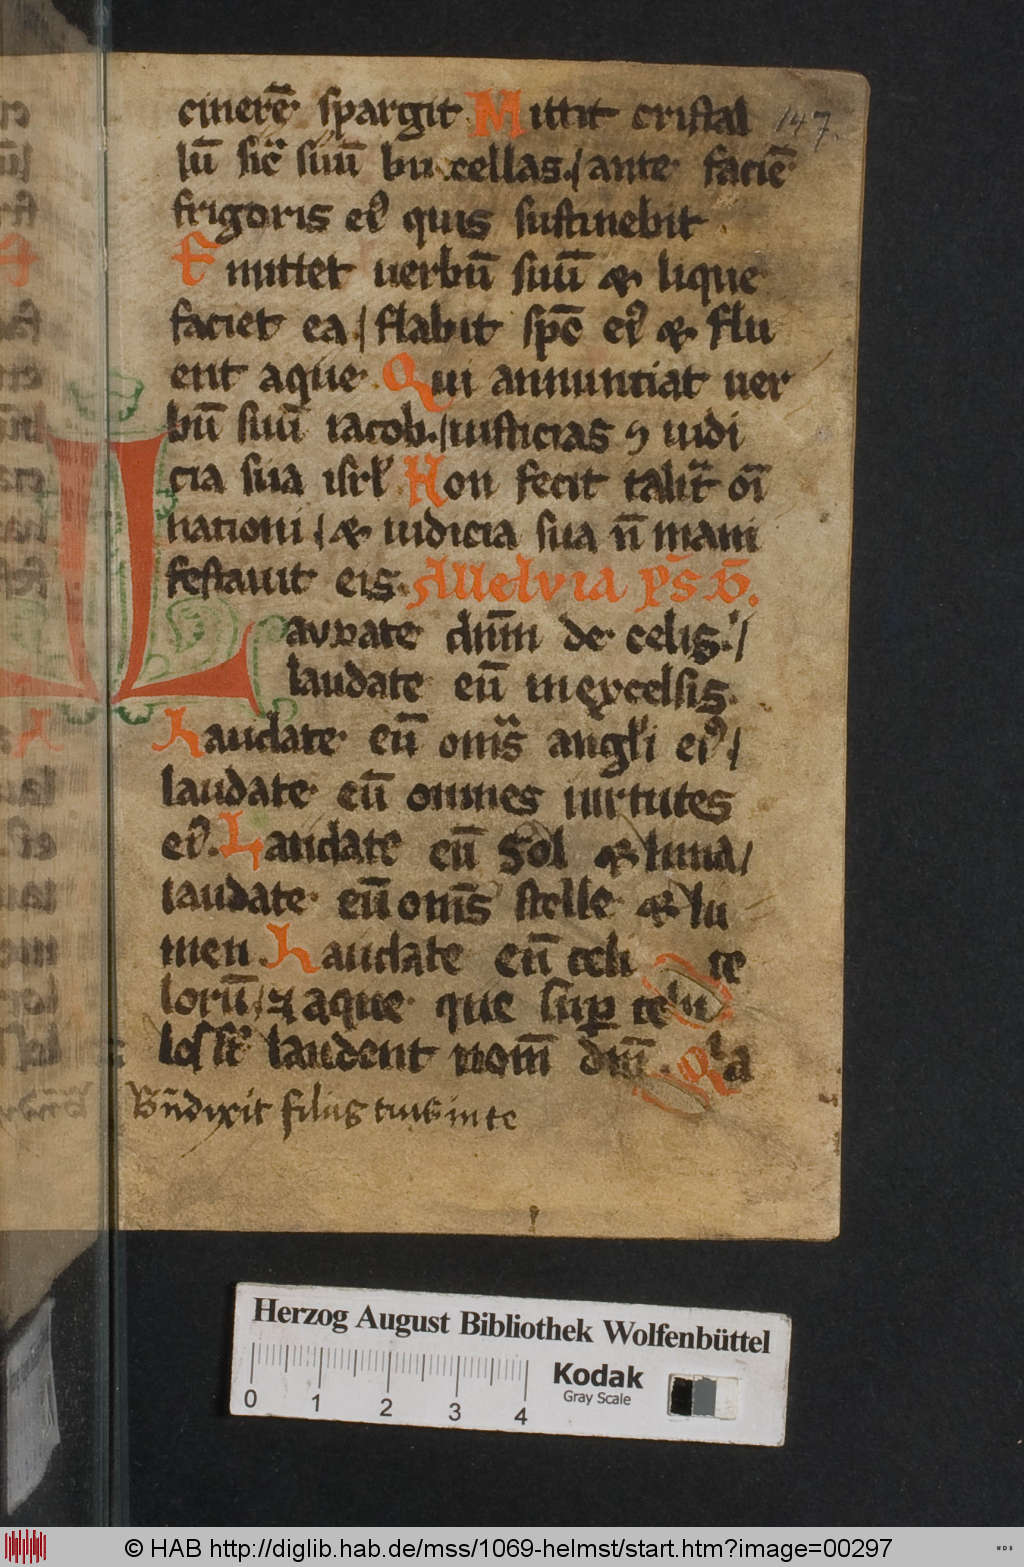 cinerē spargit Mittit cristal
147.
lū sic̄ suū buccellas./ante faciē
frigoris eiꝰ quis sustinebit
Emittet uerbū suū & lique
faciet ea / flabit spc̄ eiꝰ & flu
ent aque. Qui annunciat uer
bū suū iacob./iusticias ⁊ iudi
cia sua isrl̓. Non fecit talit̄ oī
nationi / & iudicia sua n̄ mani
festauit eis. Allelvia p̄s
Lavdate dnm̄ de celis./
laudate eū in excelsis.
Laudate eū oms̄ angl̓i eiꝰ/
laudate eū omnes uirtutes
eiꝰ. Laudate eū Sol & luna/
laudate eū oms̄ stelle & lu
men. Laudate eū celi ce
lorū/⁊ aque que suꝑ celu
los st̄ laudent nom̄ dnī.
Bn̄dixit filiis tuis in te
Herzog August Bibliothek Wolfenbüttel
Kodak
Gray Scale
0 1 2 3 4
© HAB http://diglib.hab.de/mss/1069-helmst/start.htm?image=00297